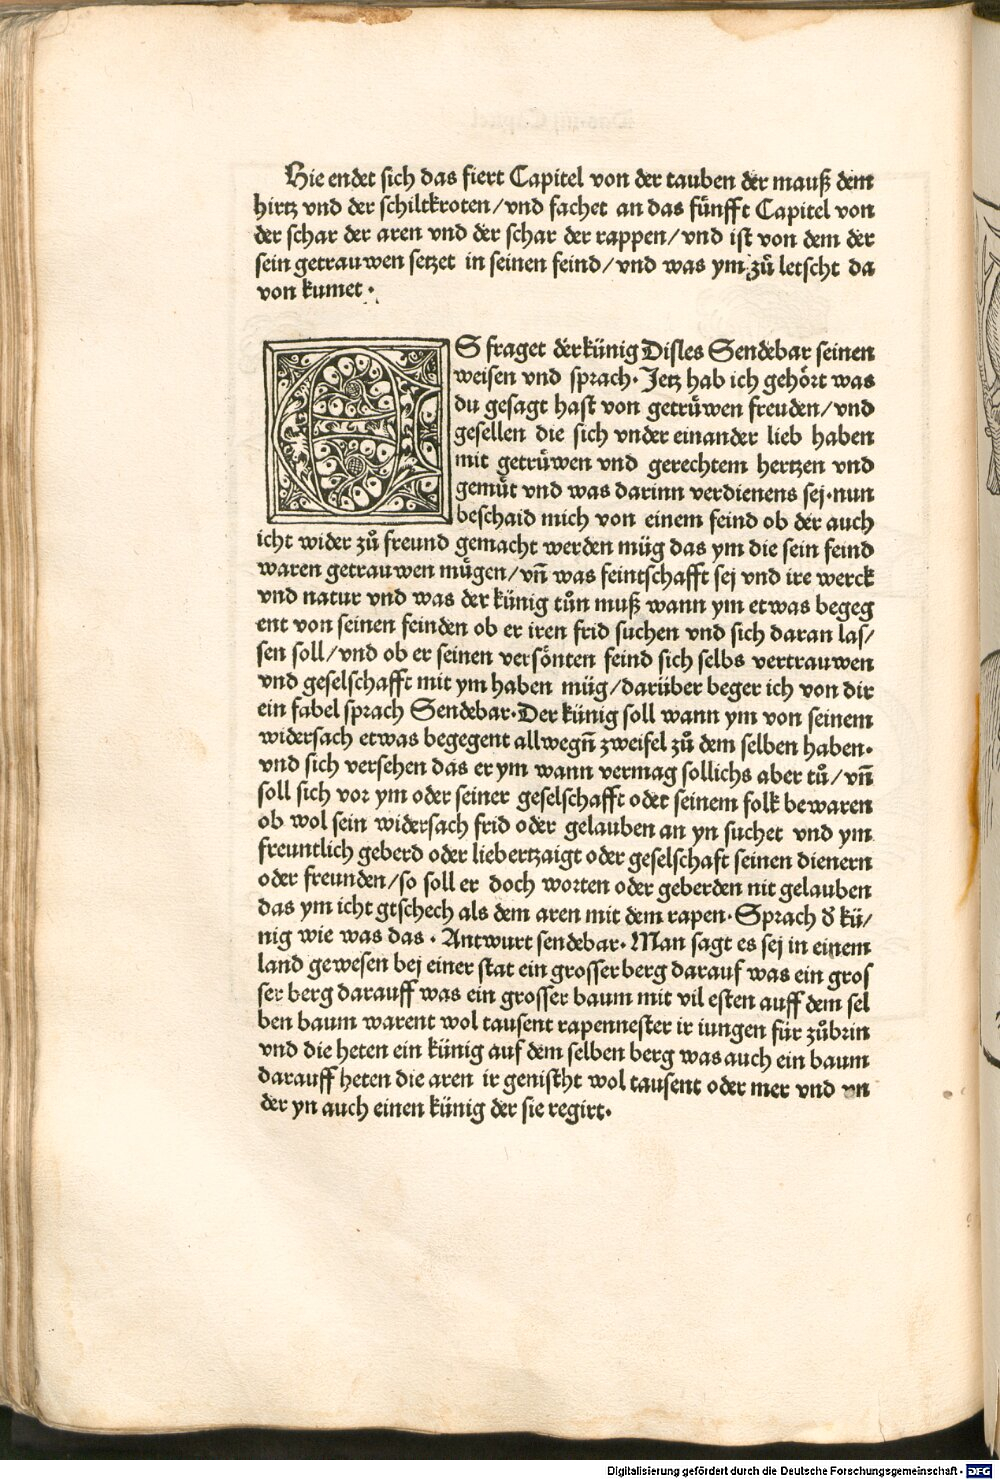 Hie endet sich das fiert Capitel von der tauben der mauß dem
hirtz vnd der schiltkroten/vnd fachet an das fünfft Capitel von
der schar der aren vnd der schar der rappen/vnd ist von dem der
sein getrauwen setzet in seinen feind/vnd was ym zů letscht da
von kumet.
ES fraget der künig Disles Sendebar seinen
weisen vnd sprach. Jetz hab ich gehört was
du gesagt hast von getrüwen freuden/vnd
gesellen die sich vnder einander lieb haben
mit getrüwen vnd gerechtem hertzen vnd
gemüt vnd was darinn verdienens sej.nun
beschaid mich von einem feind ob der auch
icht wider zů freund gemacht werden müg das ym die sein feind
waren getrauwen mügen/vñ was feintschafft sej vnd ire werck
vnd natur vnd was der künig tůn muß wann ym etwas begeg
ent von seinen feinden ob er iren frid suchen vnd sich daran las/
sen soll/vnd ob er seinen versönten feind sich selbs vertrauwen
vnd geselschafft mit ym haben müg/darüber beger ich von dir
ein fabel sprach Sendebar.Der künig soll wann ym von seinem
widersach etwas begegent allwegñ zweifel zů dem selben haben.
vnd sich versehen das er ym wann vermag sollichs aber tů/vñ
soll sich vor ym oder seiner geselschafft odet seinem folk bewaren
ob wol sein widersach frid oder gelauben an yn suchet vnd ym
freuntlich geberd oder liebertzaigt oder geselschaft seinen dienern
oder freunden/so soll er doch worten oder geberden nit gelauben
das ym icht gtschech als dem aren mit dem rapen.Sprach d̕ kü/
nig wie was das. Antwurt sendebar. Man sagt es sej in einem
land gewesen bej einer stat ein grosser berg darauf was ein gros
ser berg darauff was ein grosser baum mit vil esten auff dem sel
ben baum warent wol tausent rapennester ir iungen für zůbrin
vnd die heten ein künig auf dem selben berg was auch ein baum
darauff heten die aren ir genistht wol tausent oder mer vnd vn
der yn auch einen künig der sie regirt.
Digitalisierung gefördert durch die Deutsche Forschungsgemeinschaft - DFG